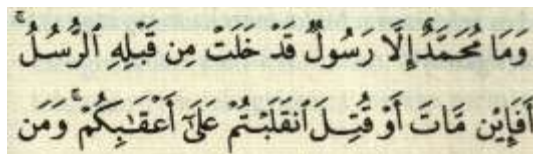 وَمَا مُحَمَّدٌ إِلَّا رَسُولٌ قَدْ خَلَتْ مِن قَبْلِهِ ٱلرُّسُلُ ۚ
أَفَإِيْن مَّاتَ أَوْ قُتِلَ ٱنقَلَبْتُمْ عَلَىٰٓ أَعْقَـٰبِكُمْ ۚ وَمَن